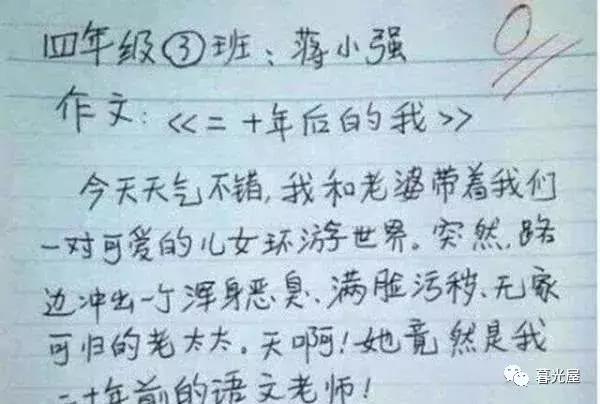 四年级③班:蒋小强
作文:<<二十年后的我>>
今天天气不错,我和老婆带着我们
一对可爱的儿女环游世界。突然,路
边冲出一个浑身恶臭、满脸污秽、无家
可归的老太太。天啊!她竟然是我
二十年前的语文老师!
0
暮光屋